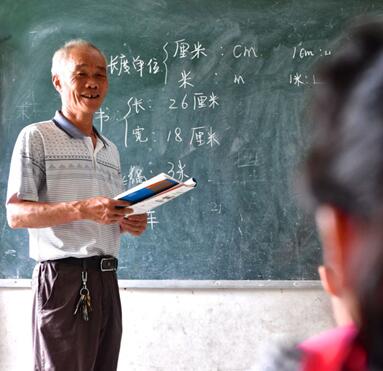 长度单位 { 厘米 : cm 1cm
米 : m 1米
书 : { 长 : 26厘米
宽 : 18厘米
3米
车